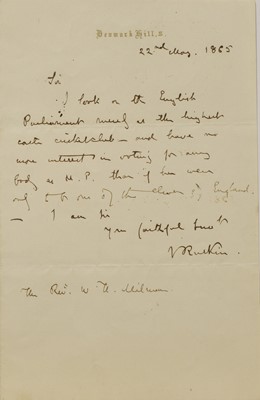 Denmark Hill, S.
22nd May. 1865
Sir
I look on the English
Parliament merely as the highest
caste cricketclub – and have no
more interest in voting for any
body as M.P. than if he were
only to be one of the eleven of England.
– I am Sir
Your faithful Servt
J Ruskin.
The Revd. W. H. Milman